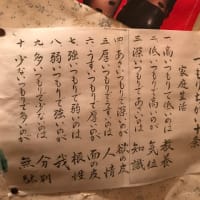 つもりちがい十ヶ条
家庭生活
一 高いつもりで低いのは 教養
二 低いつもりで高いのが 気位
三 深いつもりで浅いのは 知識
四 あさいつもりで深いのが 欲の皮
五 厚いつもりでうすいのは 人情
六 うすいつもりで厚いのが 面の皮
七 強いつもりで弱いのは 根性
八 弱いつもりで強いのが 我
九 多いつもりで少ないのは 分別
十 少ないつもりで多いのが 無駄